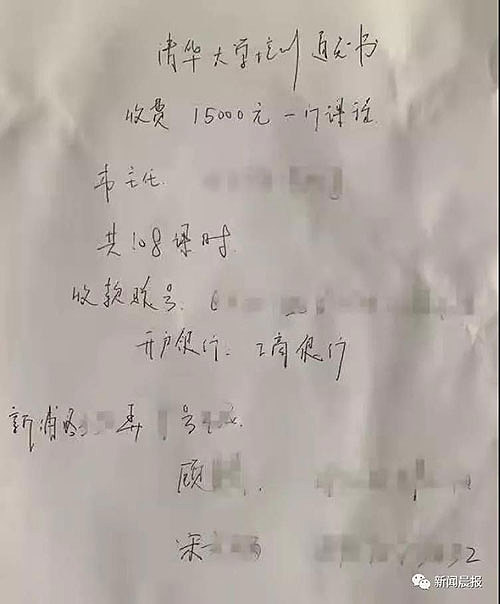 清华大学培训通知书
收费 15000元一门课程
韦主任
共108课时.
收款账号:
开户银行: 工商银行
新浦路 弄 号
顾
梁 32
新闻晨报